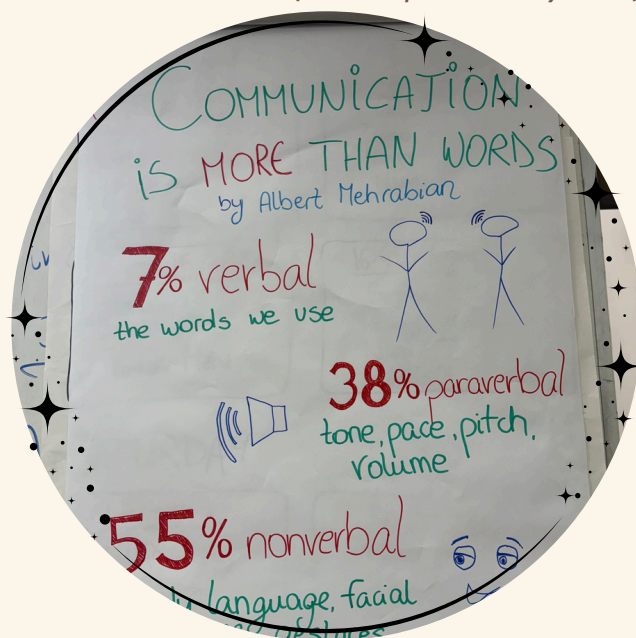 COMMUNICATION
is MORE THAN WORDS
by Albert Mehrabian
7% verbal
the words we use
38% paraverbal
tone, pace, pitch,
volume
55% nonverbal
language, facial
gestures